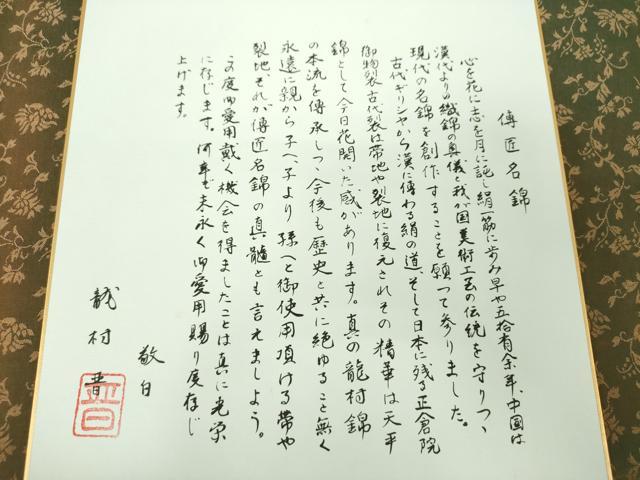 傳匠名錦
心を花に志を月に託し絹一筋に歩み早や五拾有余年、中国は
漢代よりの織錦の奥儀と我が国美術工芸の伝統を守りつゝ
現代の名錦を創作することを願って参りました。
古代ギリシヤから漢に傳わる絹の道そして日本に残る正倉院
御物裂古代裂は帯地や裂地に復元されその精華は天平
錦として今日花開いた感があります。真の龍村錦
の本流を傳承しつゝ今後も歴史と共に絶ゆること無く
永遠に親から子へ、子より孫へと御使用頂ける帯や
裂地、それが傳匠名錦の真髄とも言えましよう。
この度御愛用戴く機会を得ましたことは真に光栄
に存じます。何卒末永く御愛用賜り度存じ
上げます。
敬白
龍村晋
晋